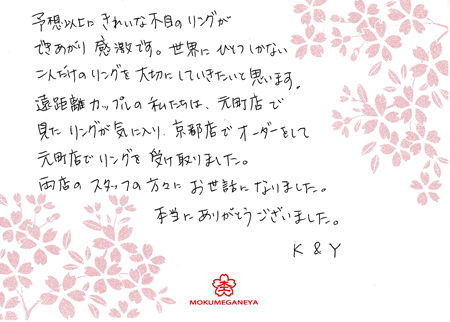 予想以上にきれいな木目のリングが
できあがり感激です。世界にひとつしかない
二人だけのリングを大切にしていきたいと思います。
遠距離カップルの私たちは、元町店で
見たリングが気に入り、京都店でオーダーをして
元町店でリングを受け取りました。
両店のスタッフの方々にお世話になりました。
本当にありがとうございました。
K & Y
MOKUMEGANEYA